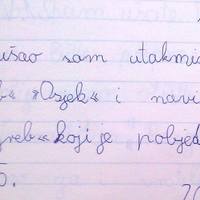 ušao sam utakmi
» Osjek« i navi
greb« koji je pobje
5.